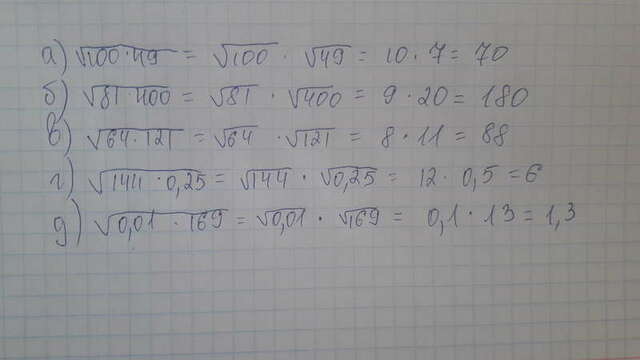 а) √100·49 = √100 · √49 = 10·7 = 70
б) √81·400 = √81 · √400 = 9·20 = 180
в) √64·121 = √64 · √121 = 8·11 = 88
г) √144·0,25 = √144 · √0,25 = 12·0,5 = 6
д) √0,01·169 = √0,01 · √169 = 0,1·13 = 1,3